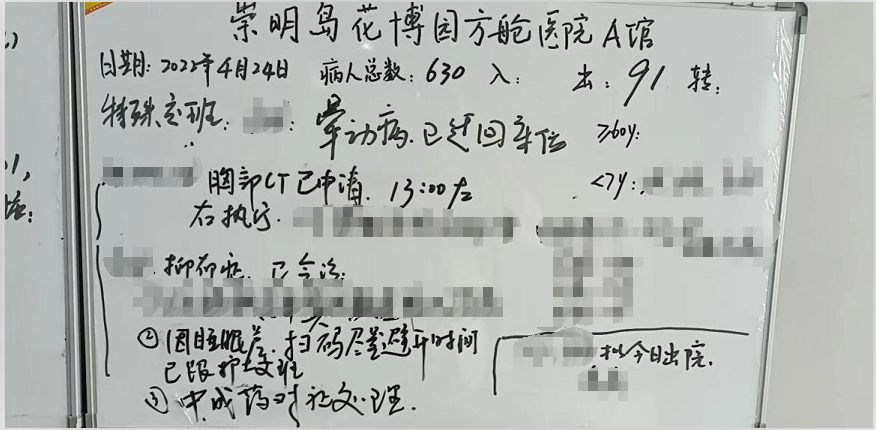 崇明岛花博园方舱医院A馆
日期:2022年4月24日 病人总数:630 入: 出:91 转:
特殊交班: 晕动病.已迁回床位 ≥60y:
胸部CT已申请.13:00左 <7y:
右执行.
抑郁症.已会诊
②因睡眠差,扫码尽量避开时间
已跟护士交班
拟今日出院.
③中成药对症处理.